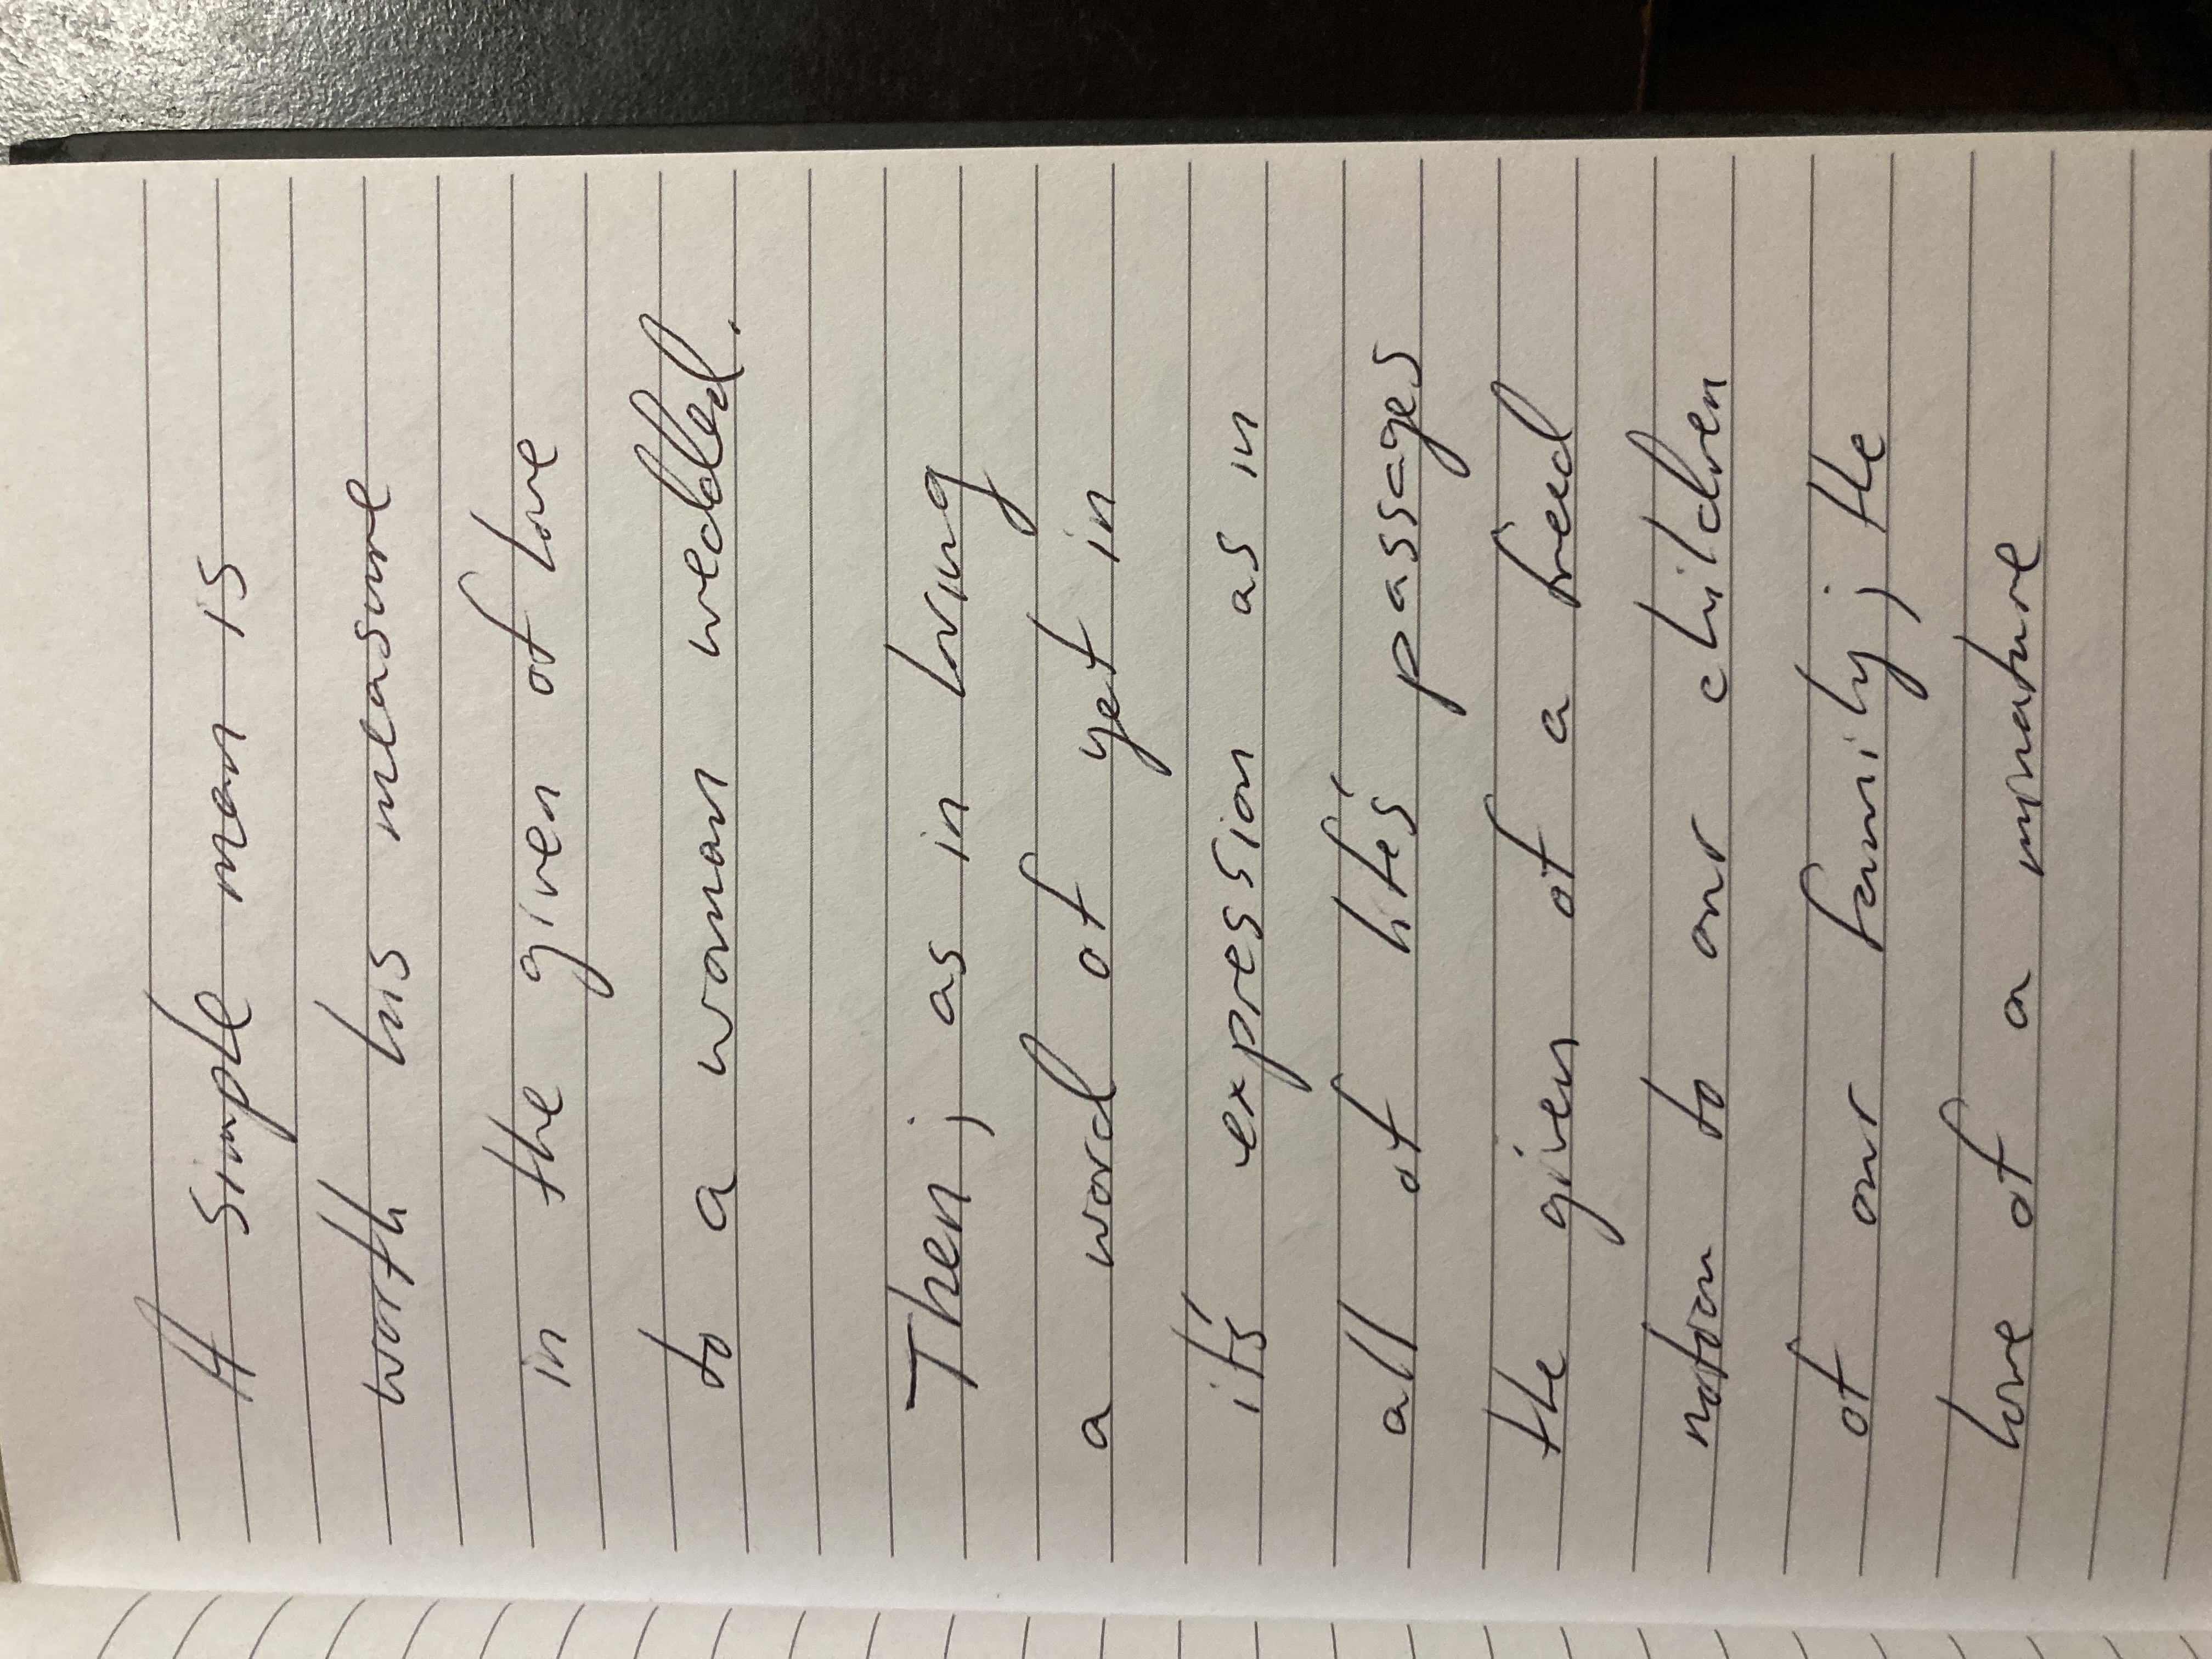 A simple man is
worth his measure
in the given of love
to a woman wedded.
Then, as in loving
a word of yet in
its' expression as in
all of life's passages
the given of a freed
notion to our children
of our family; the
love of a mature